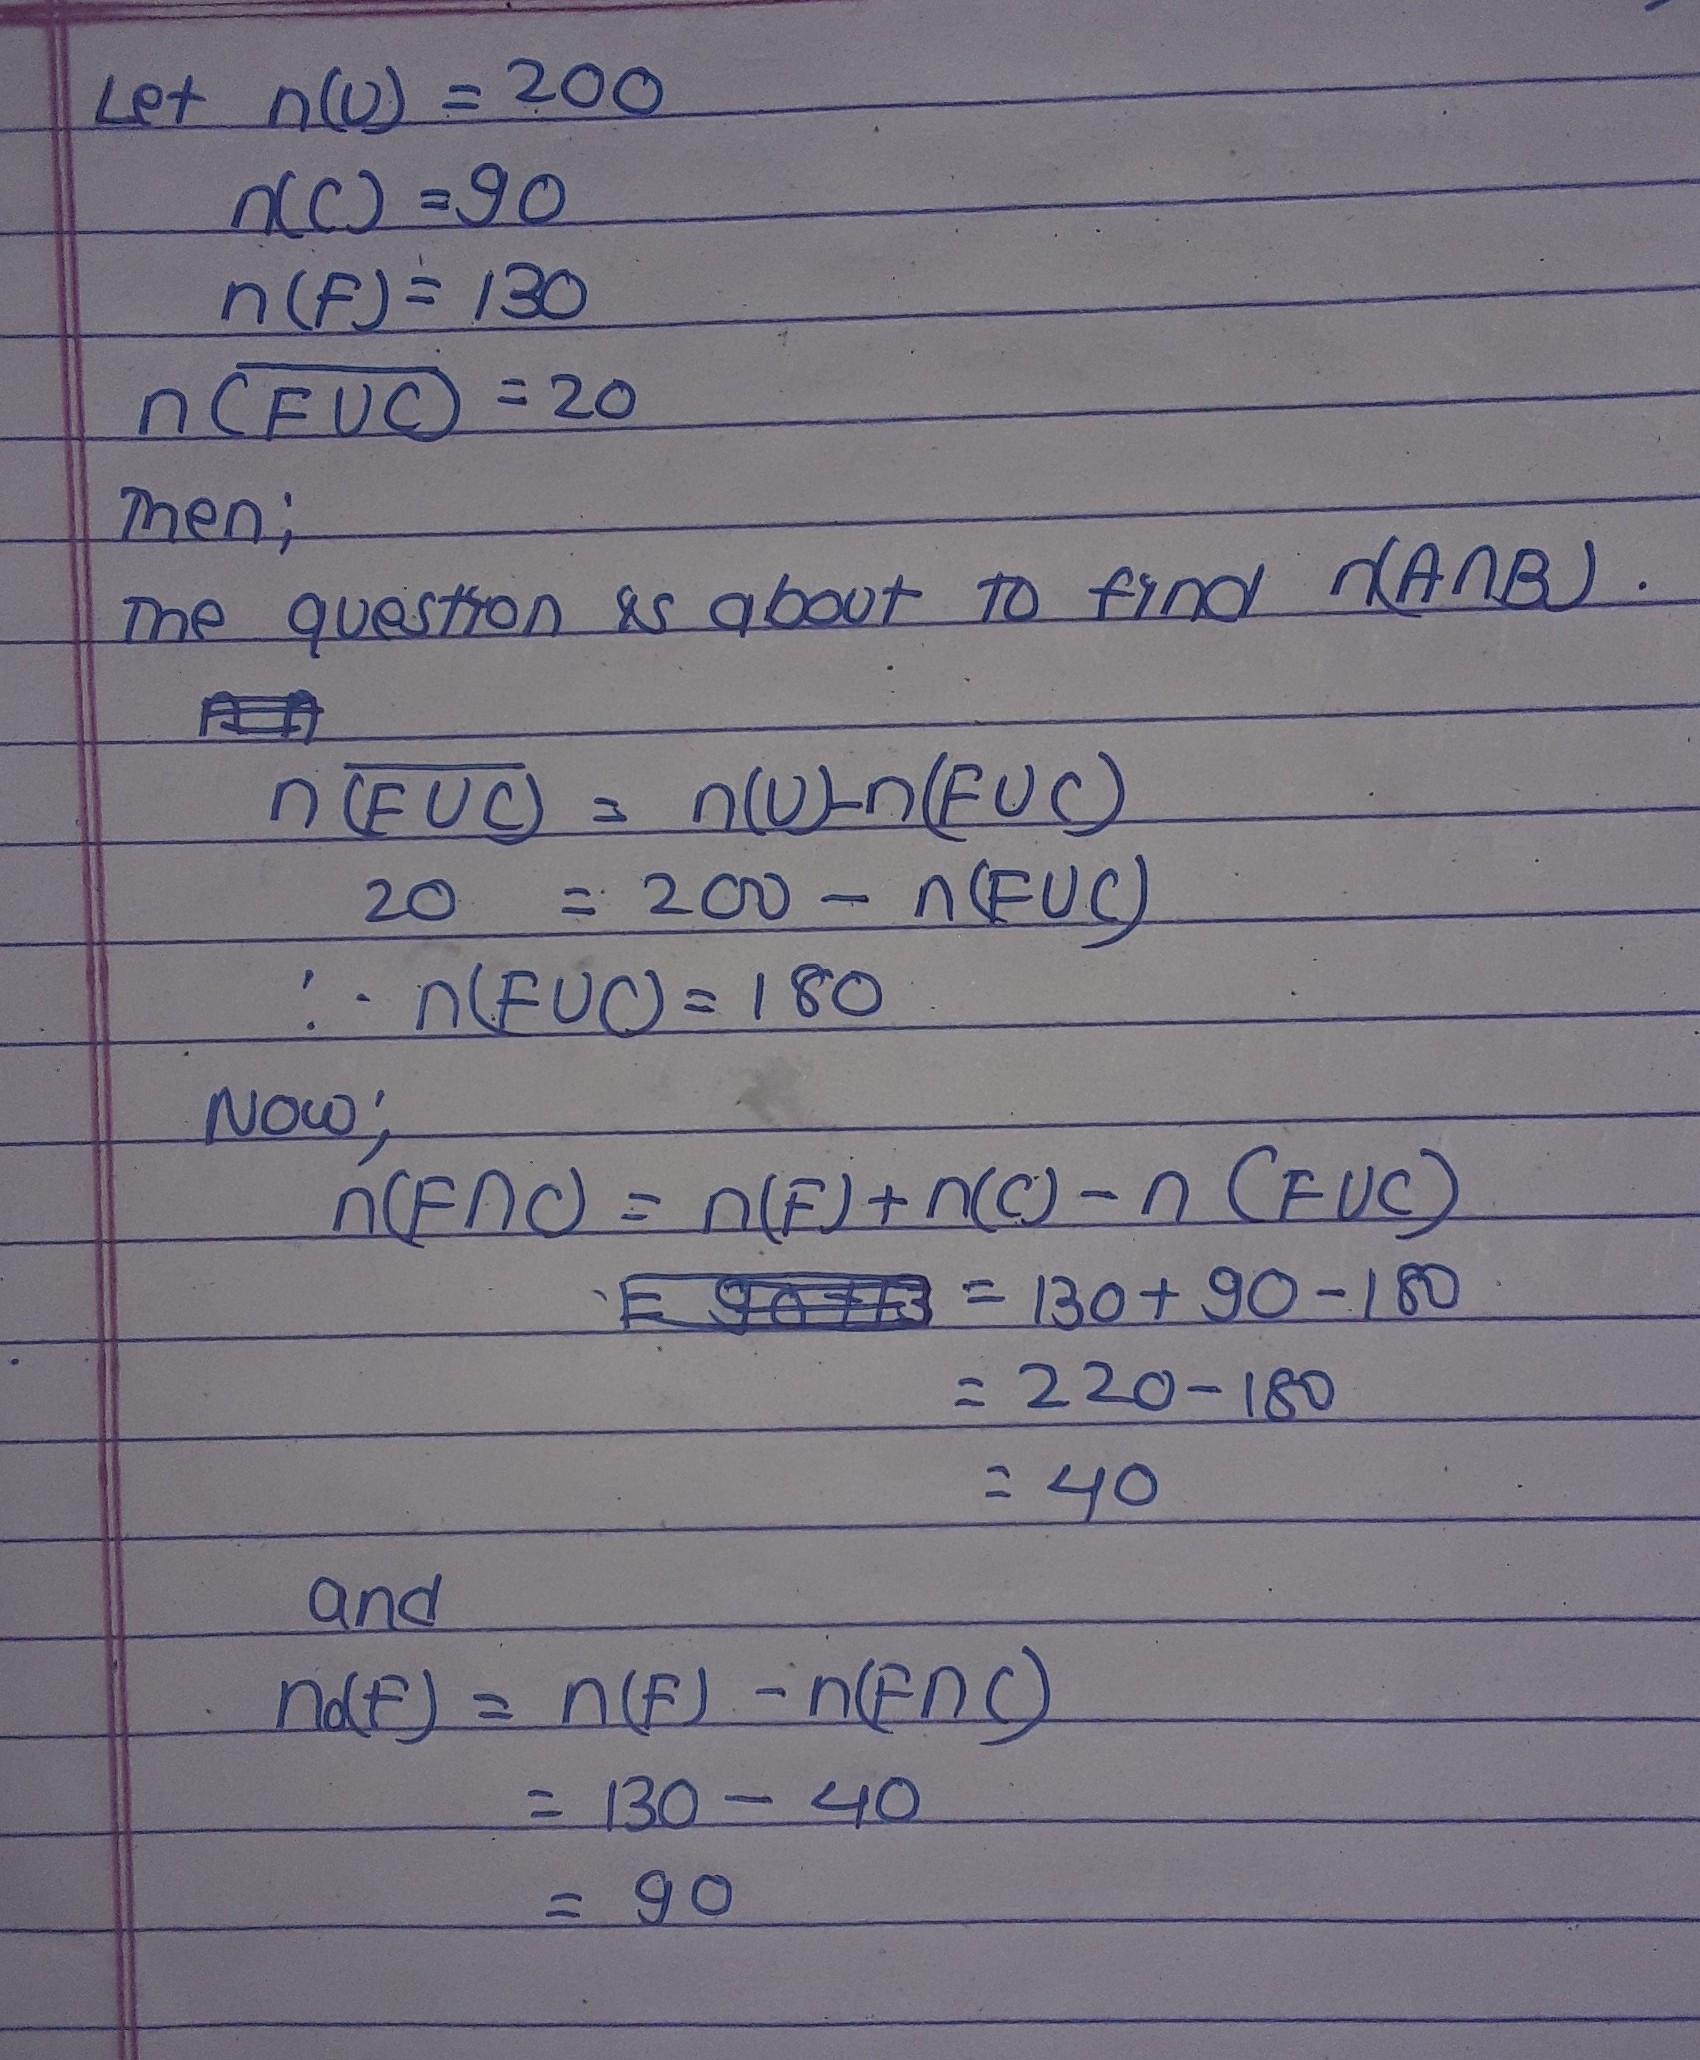 Let n(U) = 200
n(C) = 90
n(F) = 130
n(\overline{FUC}) = 20
Then;
The question is about to find n(A∩B).
n(\overline{FUC}) = n(U) - n(FUC)
20 = 200 - n(FUC)
∴ n(FUC) = 180
Now;
n(F∩C) = n(F) + n(C) - n (FUC)
= 130 + 90 - 180
= 220 - 180
= 40
and
no(F) = n(F) - n(F∩C)
= 130 - 40
= 90